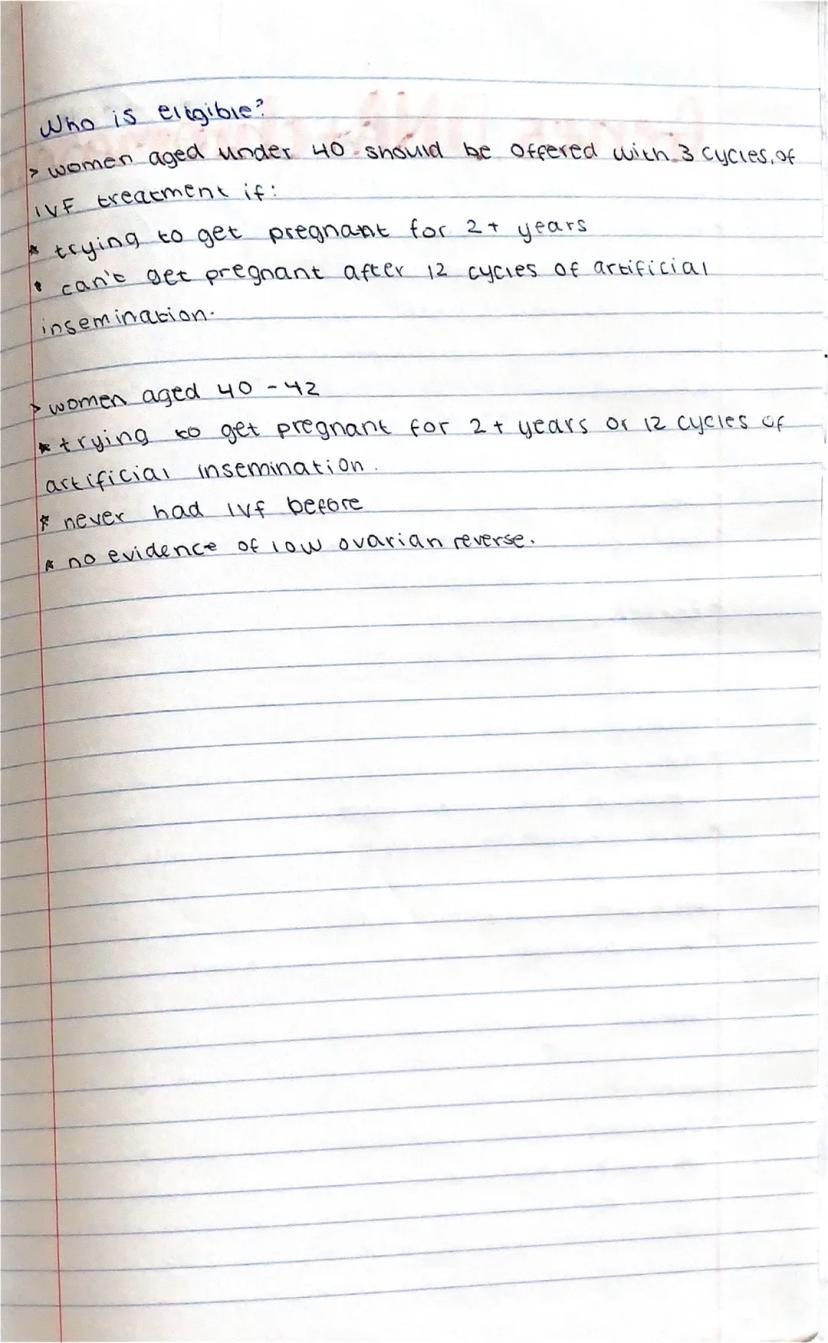 Who is eligible?
> women aged under 40 should be offered with 3 cycles, of
IVF treatment if:
* trying to get pregnant for 2+ years
• can't get pregnant after 12 cycles of artificial
insemination.
> women aged 40 - 42
* trying to get pregnant for 2+ years or 12 cycles of
artificial insemination.
* never had IVF before
* no evidence of low ovarian reverse.